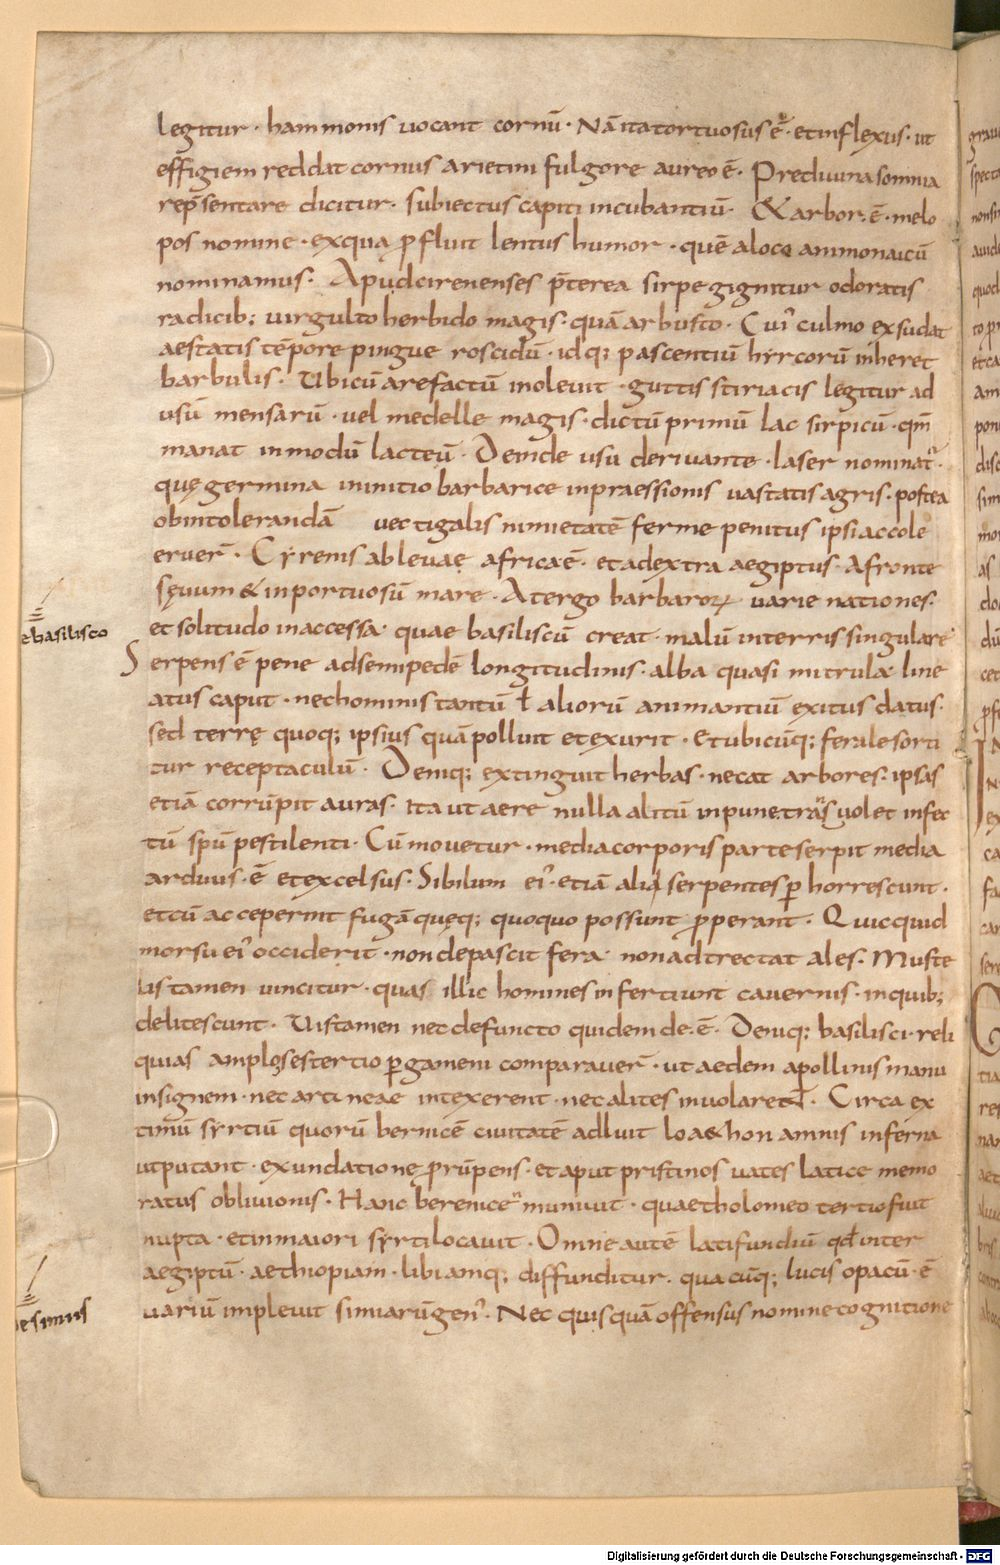 legitur · hammonis uocant cornū · Nā ita tortuosus ē · et inflexus · ut
effigiem reddat cornus arietini fulgore aureo ē · Prediuina somnia
rep̄sentare dicitur · subiectus capiti incubantiū · & arbor · ē · melo
pos nomine · exqua p̱fluit lentus humor · quē aloco ammonaicū
nominamus · Apud cirenenses p̄terea sirpe gignitur odoratis
radicib; uirgulto herbido magis · quā arbusto · Cui' culmo exsudat
aestatis tēpore pingue roscidū · idq; pascentiū hyrcorū inheret
barbulis · Ubicū arefactū inoleuit · guttis stiriacis legitur ad
usū mensarū · uel medelle magis · dictū primū lac sirpicū · qm̄
manat inmodū lacteū · Deinde usu deriuante · laser nominat' ·
quę germina ininitio barbarice inpraessionis uastatis agris · postea
ob intolerandā uectigalis nimietatē ferme penitus ipsi accole
eruer̄ · Cyrenis ab leuae africa ē · et adextra aegiptus · Afronte
sęuum & inportuosū mare · Atergo barbaroꝝ uarie nationes ·
et solitudo inaccessa · quae basiliscū creat · malū interris singulare ·
e basilisco
Serpens ē pene adsemipedē longitudinis · alba quasi mitrula line
atus caput · nec hominis tantū ł aliorū animantiū exitus datus ·
sed terrę quoq; ipsius quā polluit et exurit · et ubicūq; ferale sorti
tur receptaculū · Deniq; extinguit herbas · necat arbores · ipsas
etiā corrūpit auras · ita ut aere nulla alitū inpune trās uolet infec
tū sp̄u pestilenti · Cū mouetur · media corporis parte serpit media
arduus · ē et excelsus · Sibilum ei' · etiā alii serpentes p̱ horrescunt ·
et cū acceperint fugā quęq; quoquo possunt p̱perant · Quicquid
morsu ei' occiderit · non depascit fera · non adtrectat ales · Muste
lis tamen uincitur · quas illic homines infertiunt cauernis · inquib;
delitescunt · Uis tamen nec defuncto quidem de · ē · Deniq; basilisci · reli
quias amplo sestertio p̱gameni comparauer̄ · ut aedem apollinis manu
insignem · nec arti neae intexerent · nec alites inuolarent · Circa ex
timū syrtiū quorū bernicē ciuitatē adluit loa&hon amnis inferna
ut putant · exundatione p̱rūpens · et aput pristinos uates latice memo
ratus obliuionis · Hanc berenice muniuit · quae tholomeo tertio fuit
nupta · et inmaiori syrti locauit · Omne autē latifundiū qđ inter
aegiptū · aethiopiam · libiamq; diffunditur · qua cūq; lucis opacū · ē
uariū impleuit simiarū gen' · Nec quisquā offensus nomine cognitione
e simiis
Digitalisierung gefördert durch die Deutsche Forschungsgemeinschaft - DFG